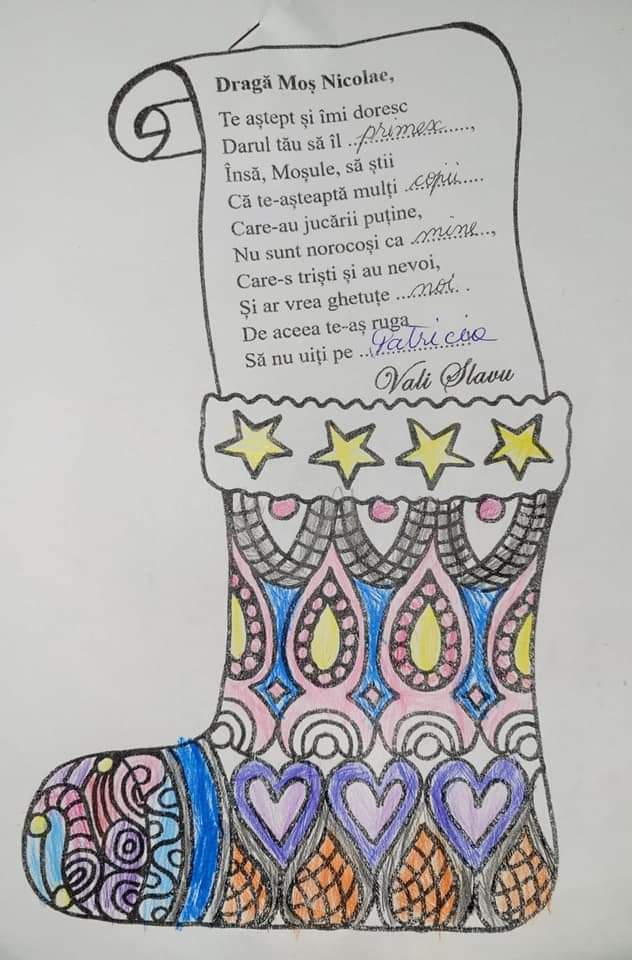 Dragă Moș Nicolae,
Te aștept și îmi doresc
Darul tău să îl ..primesc.....,
Însă, Moșule, să știi
Că te-așteaptă mulți ..copii.....
Care-au jucării puține,
Nu sunt norocoși ca ..mine...,
Care-s triști și au nevoi,
Și ar vrea ghetuțe ...noi... .
De aceea te-aș ruga
Să nu uiți pe ..Patricia
Vali Slavu